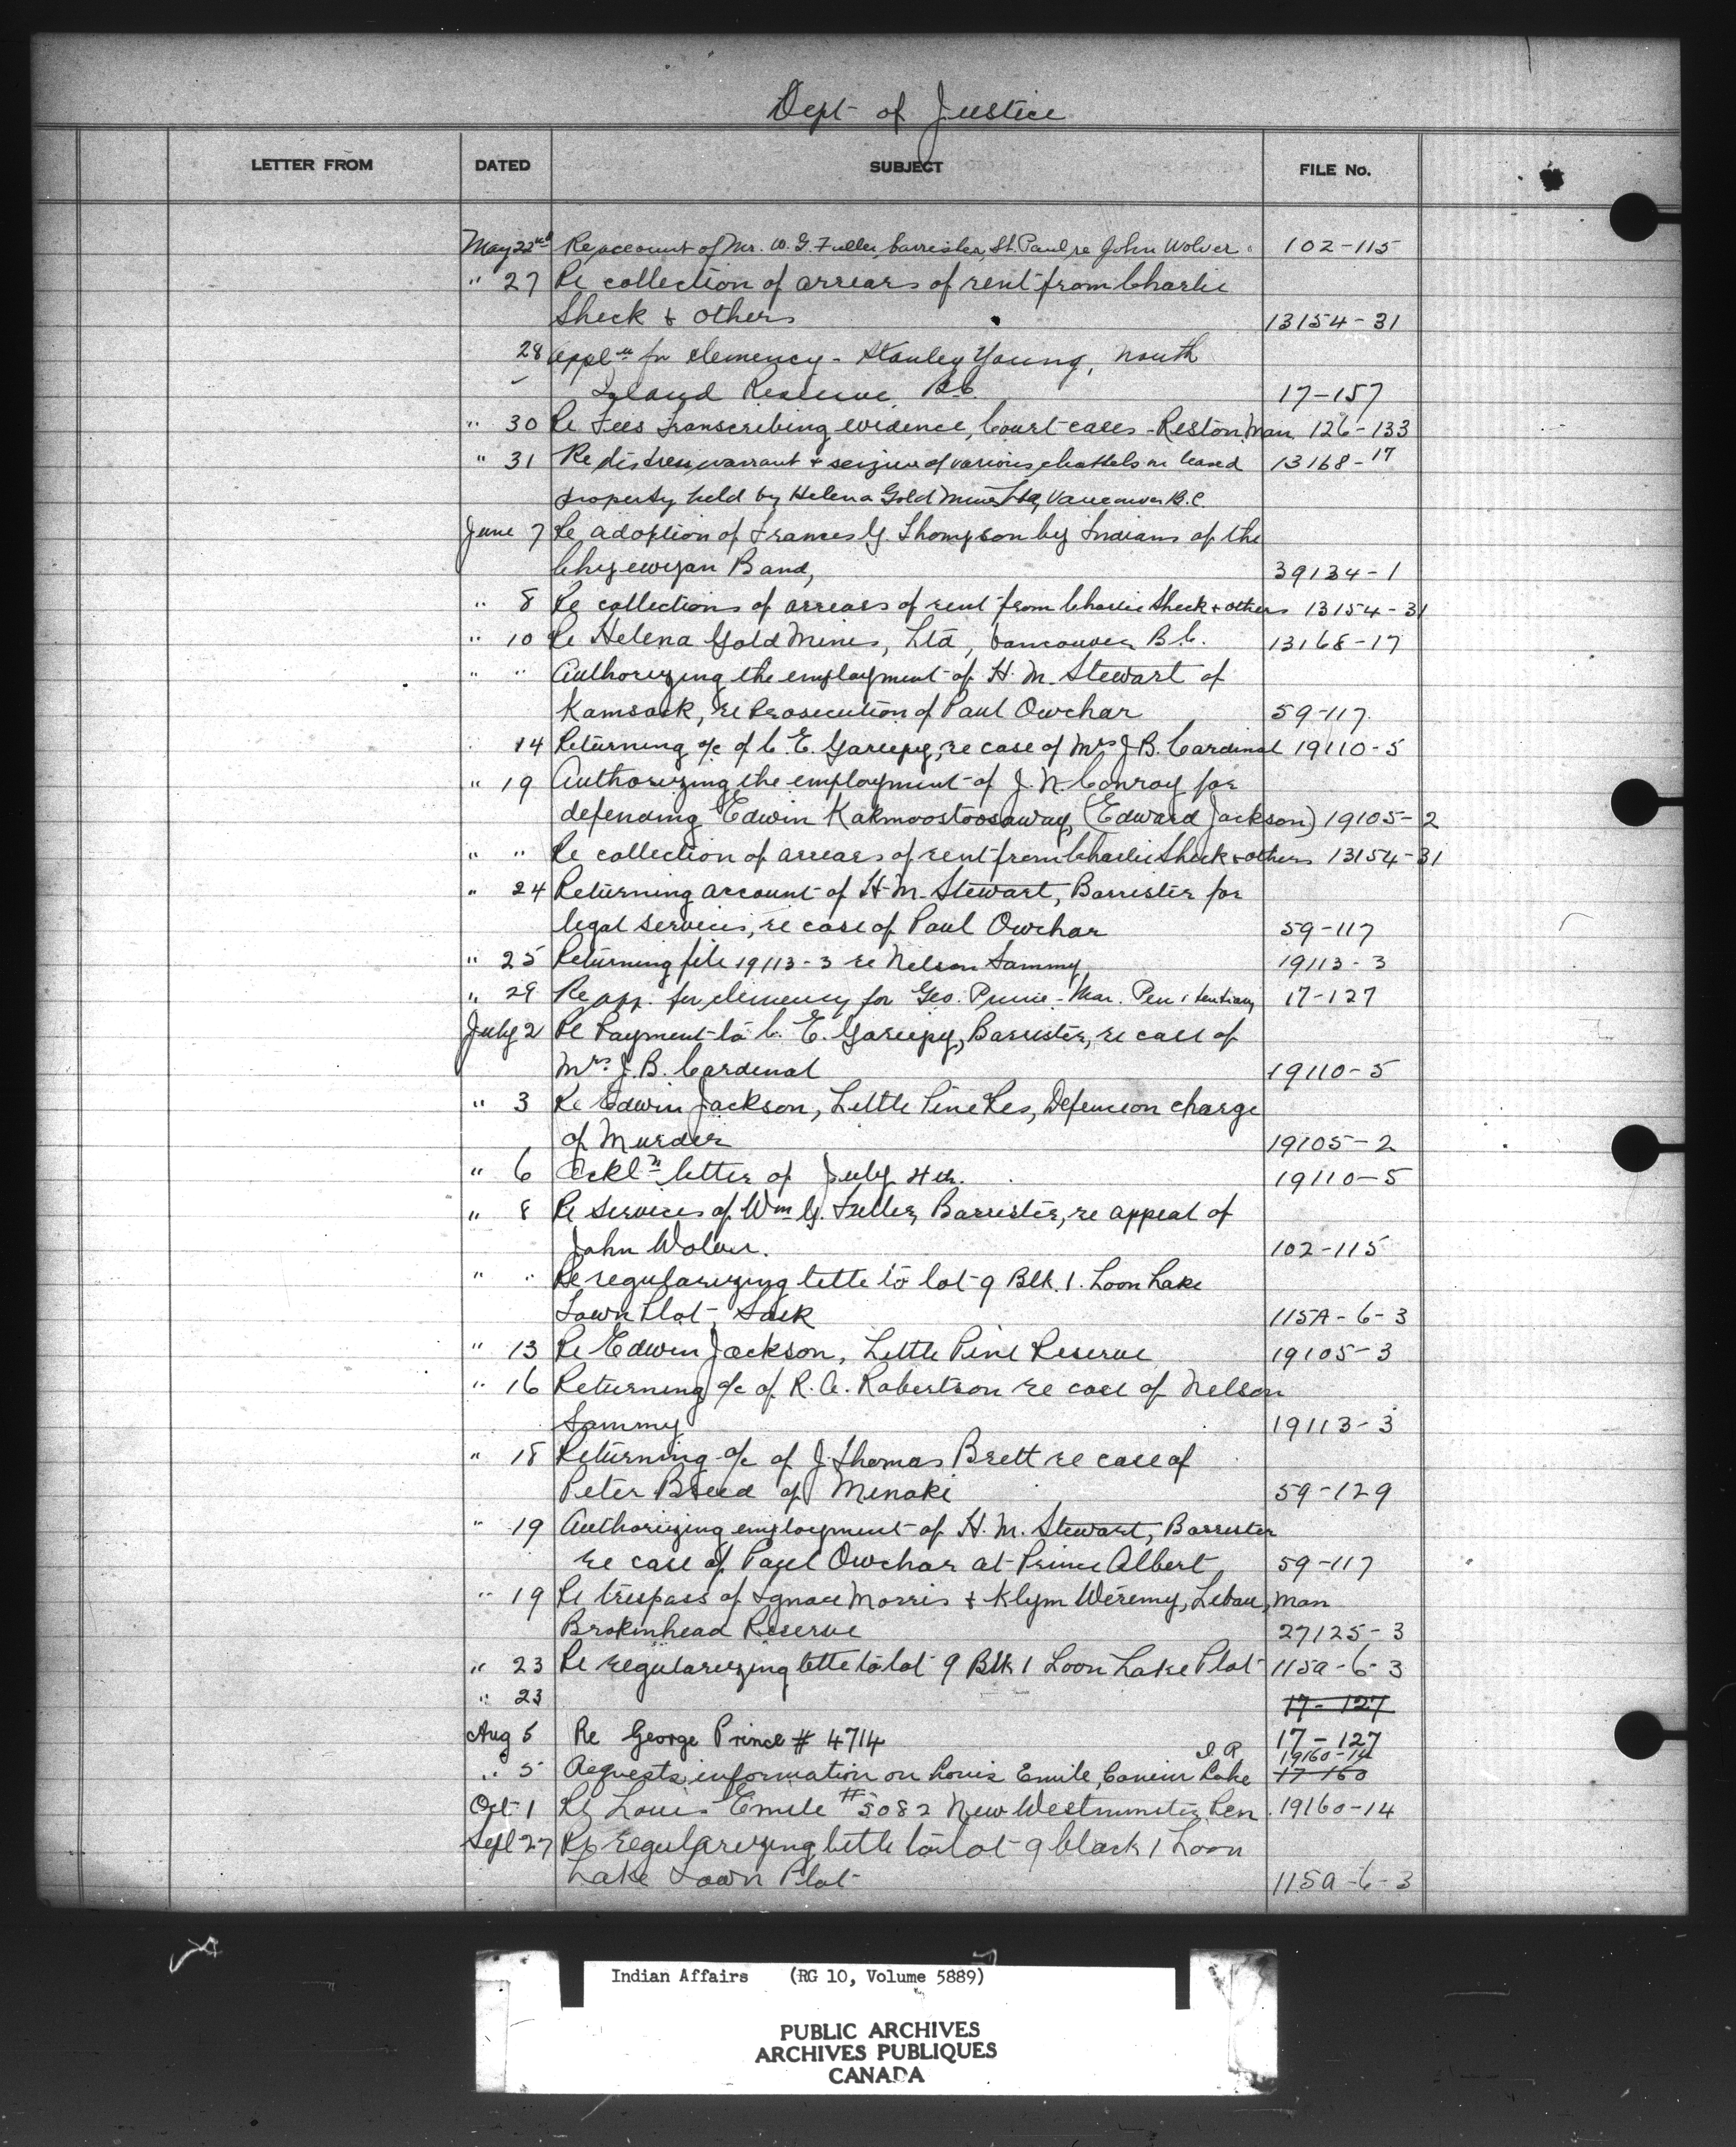 Dept of Justice
LETTER FROM DATED SUBJECT FILE No.
May 22nd Re account of Mr. W. G. Fuller, barrister, St. Paul re John Wolver 102-115
" 27 Re collection of arrears of rent from Charlie
Sheck & others 13154-31
28 Appl'n for clemency - Stanley Young, North
Island Reserve, B.C. 17-157
" 30 Re Fees transcribing evidence, Court cases - Reston Man. 126-133
" 31 Re distress warrant & seizure of various chattels on leased 13168-17
property held by Helena Gold Mines Ltd, Vancouver B.C.
June 7 Re adoption of Frances G. Thompson by Indians of the
Chipewyan Band, 39134-1
" 8 Re collections of arrears of rent from Charlie Sheck & others 13154-31
" 10 Re Helena Gold Mines, Ltd, Vancouver B.C. 13168-17
" " Authorizing the employment of H. M. Stewart of
Kamsack, re Prosecution of Paul Owchar 59-117
14 Returning a/c of C. E. Gariepy, re case of Mrs J. B. Cardinal 19110-5
" 19 Authorizing the employment of J. N. Conroy for
defending Edwin Kakmoostoosaway, (Edward Jackson) 19105-2
" " Re collection of arrears of rent from Charlie Sheck & others 13154-31
" 24 Returning account of H. M. Stewart, Barrister for
legal services, re case of Paul Owchar 59-117
" 25 Returning file 19113-3 re Nelson Sammy, 19113-3
" 29 Re app. for clemency for Geo. Prince - Man. Penitentiary 17-127
July 2 Re Payment to C. E. Gariepy, Barrister, re case of
Mrs. J. B. Cardinal 19110-5
" 3 Re Edwin Jackson, Little Pine Res, Defence on charge
of Murder 19105-2
" 6 Ackl'n letter of July 4th. 19110-5
" 8 Re services of Wm G. Fuller, Barrister, re appeal of
John Wolver. 102-115
" " Re regularizing title to lot 9 Blk. 1. Loon Lake
Town Plot, Sask 115A-6-3
" 13 Re Edwin Jackson, Little Pine Reserve 19105-3
" 16 Returning a/c of R. A. Robertson re case of Nelson
Sammy 19113-3
" 18 Returning a/c of J. Thomas Brett re case of
Peter Breed of Minaki 59-129
" 19 Authorizing employment of H. M. Stewart, Barrister
re case of Paul Owchar at Prince Albert 59-117
" 19 Re trespass of Ignace Morris & Klym Weremy, Libau, Man
Brokenhead Reserve 27125-3
" 23 Re regularizing title to lot 9 Blk 1 Loon Lake Plot 115a-6-3
" 23 17-127
Aug 5 Re George Prince # 4714 17-127
" 5 Requests information on Louis Emile, Canim Lake I.R. 19160-14 17-160
Oct 1 Re Louis Emile #5082 New Westminster Pen. 19160-14
Sept 27 Re regularizing title to lot 9 block 1 Loon
Lake Town Plot 115a-6-3
Indian Affairs (RG 10, Volume 5889)
PUBLIC ARCHIVES
ARCHIVES PUBLIQUES
CANADA